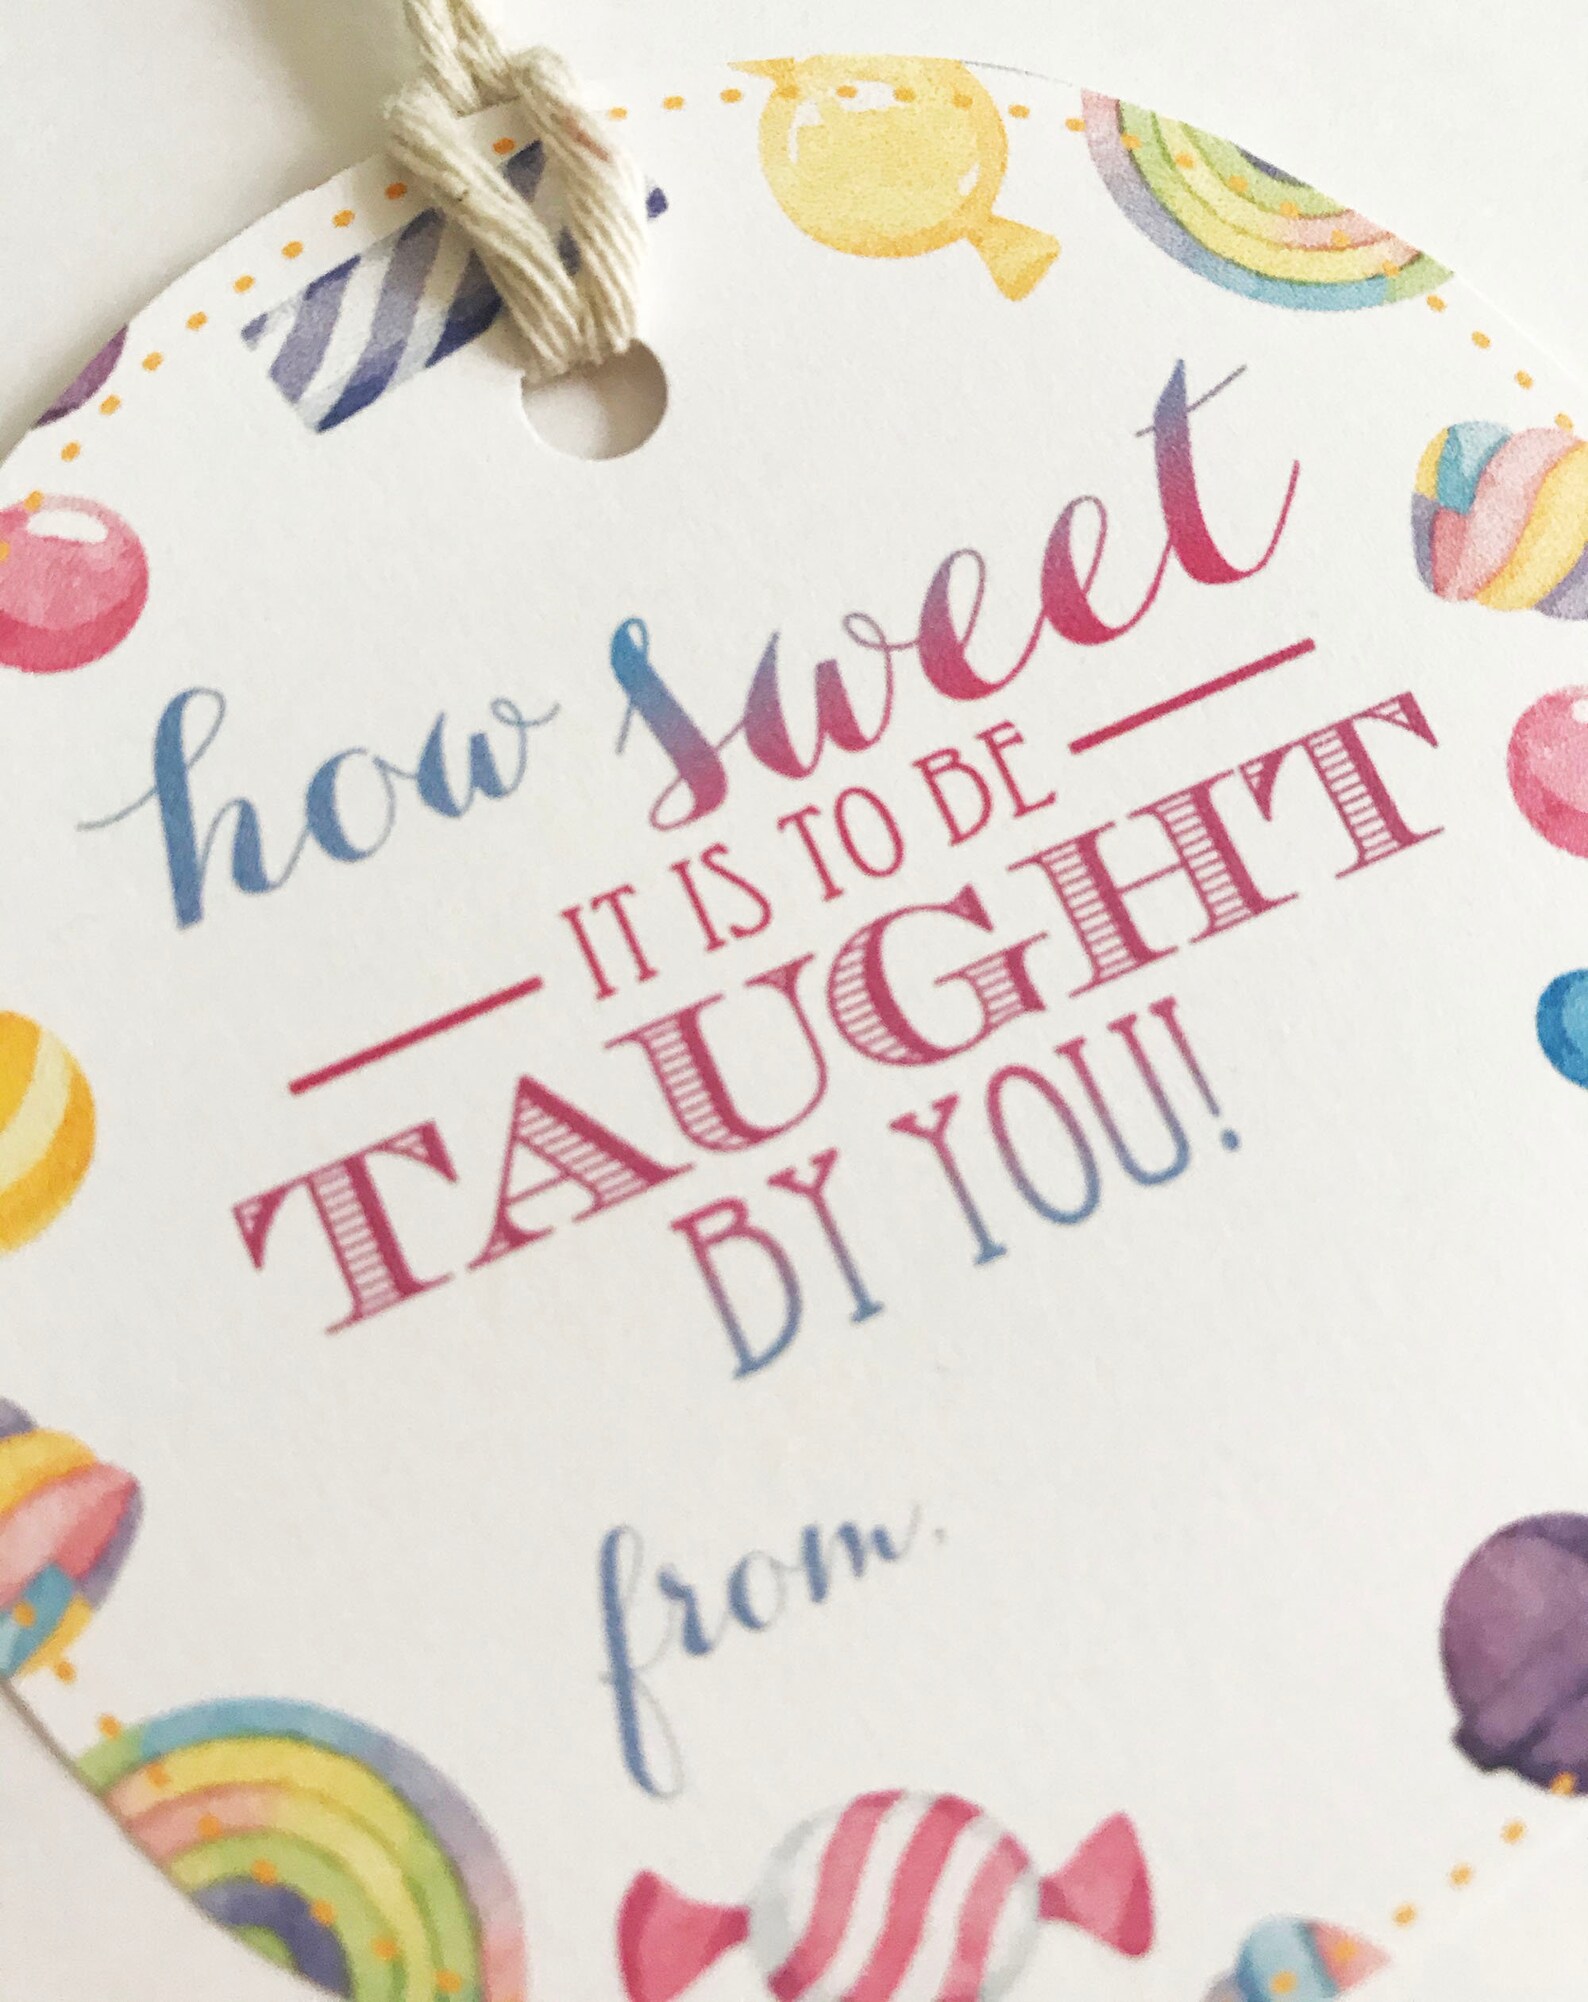 how sweet
IT IS TO BE
TAUGHT
BY YOU!
from: